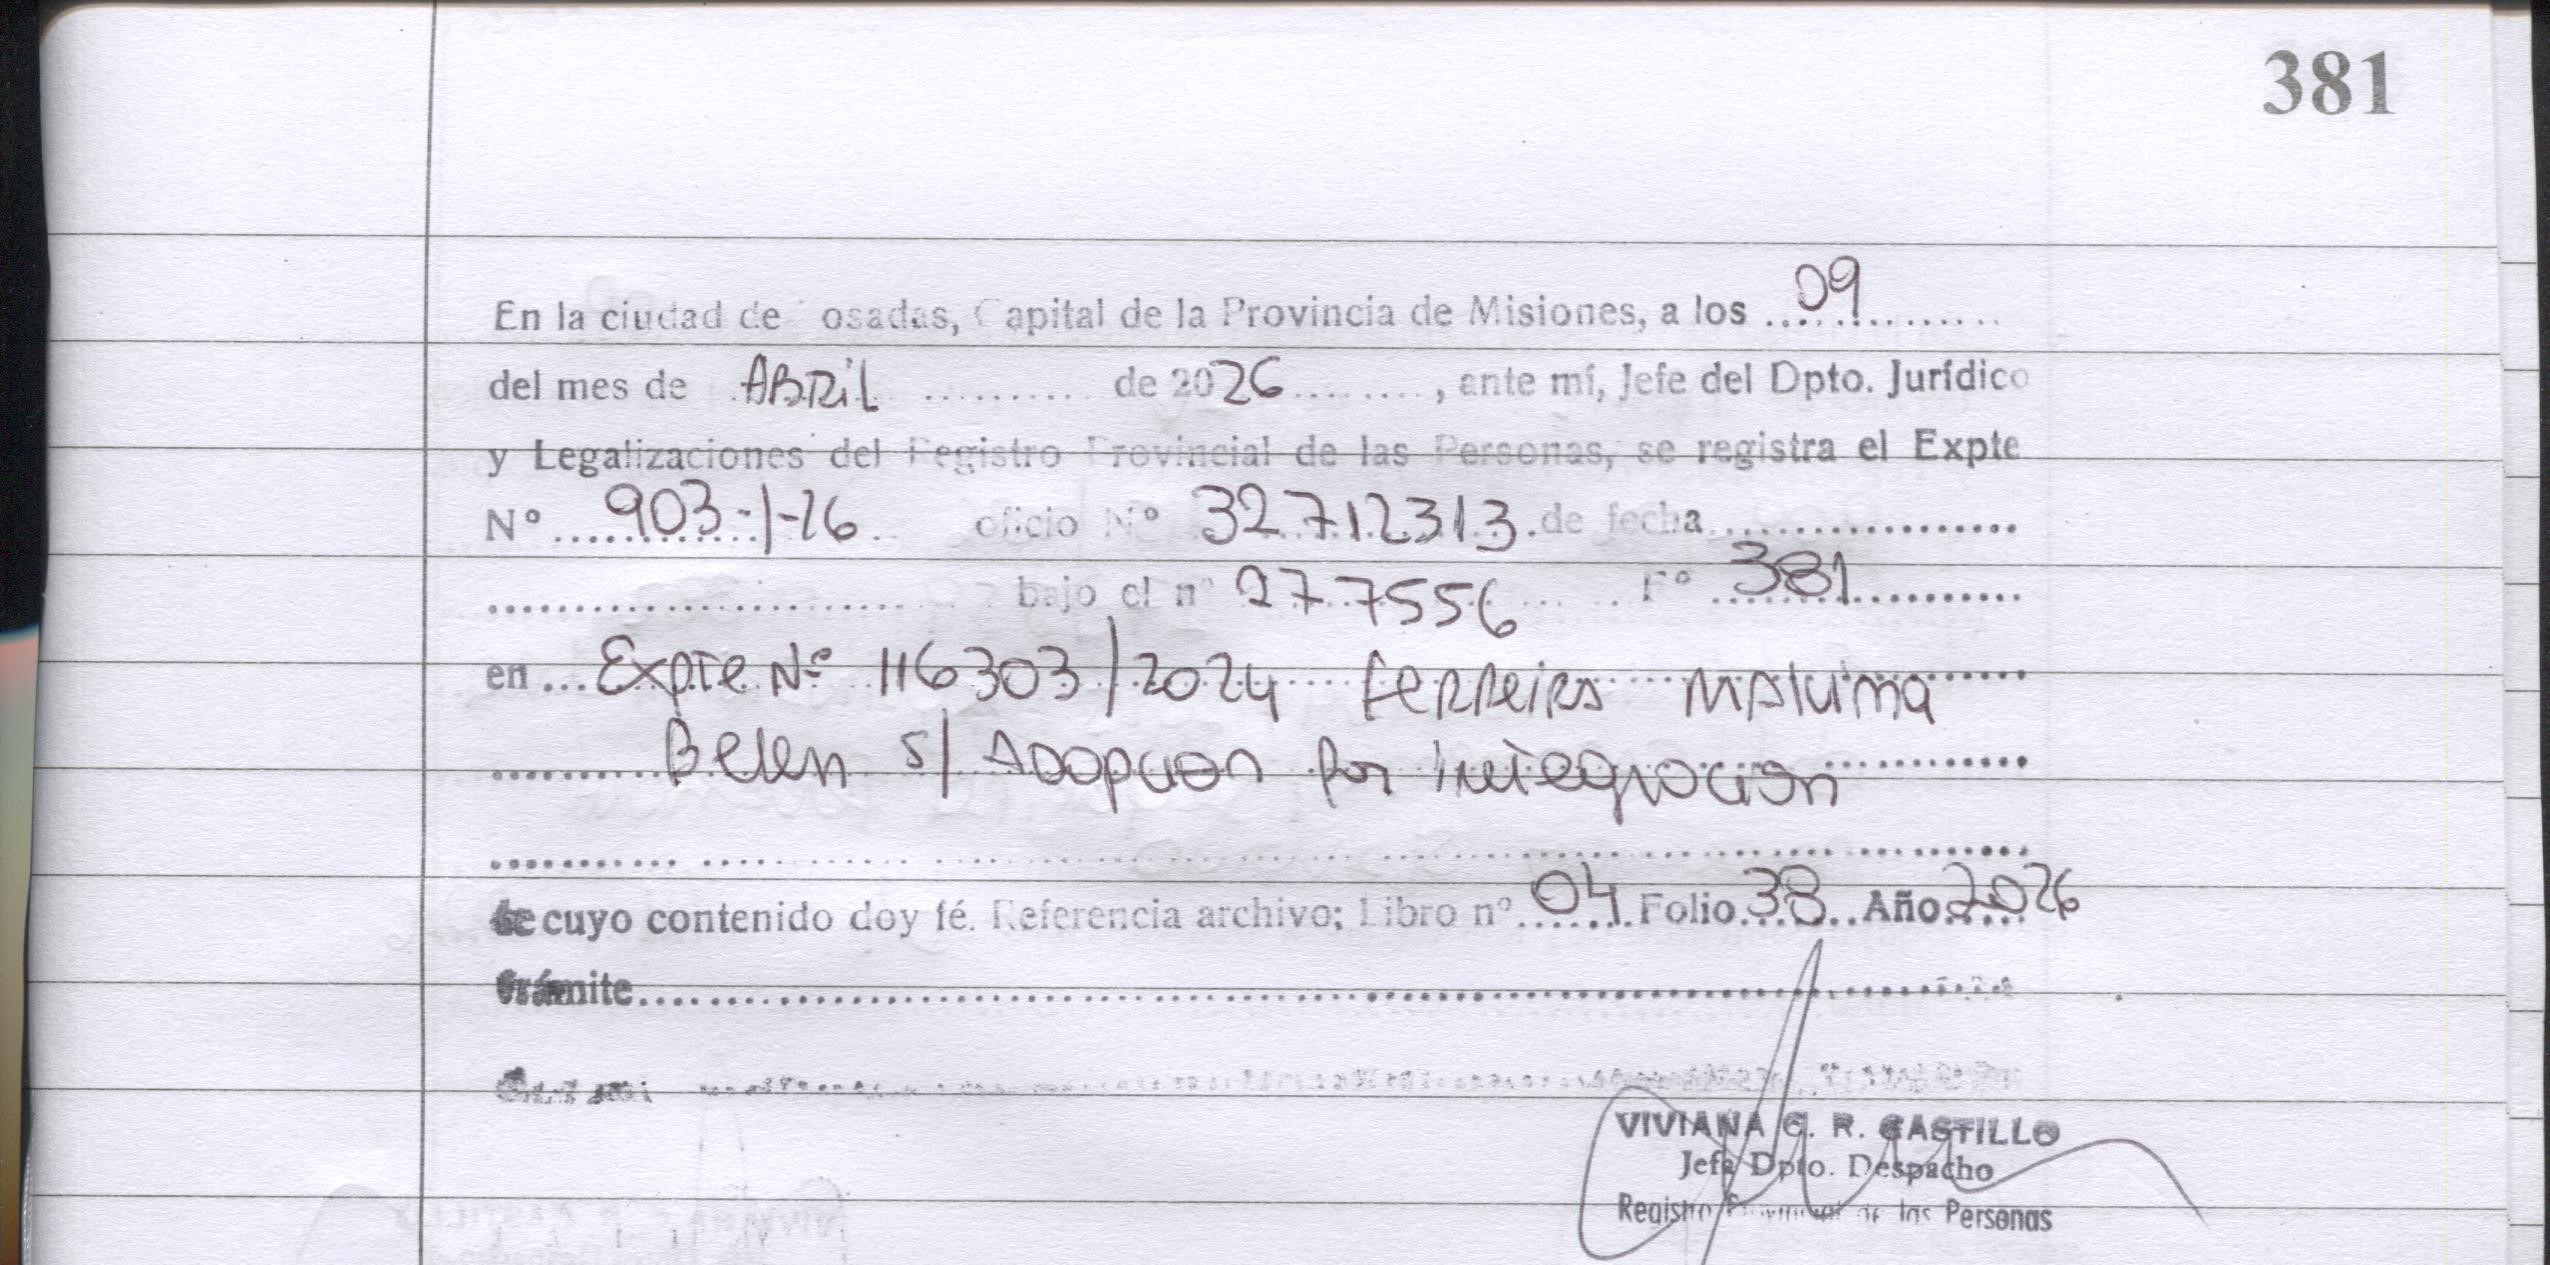 381
En la ciudad de Posadas, Capital de la Provincia de Misiones, a los ....09..............
del mes de ABRIL .......... de 2026........, ante mí, Jefe del Dpto. Jurídico
y Legalizaciones del Registro Provincial de las Personas, se registra el Expte
Nº ...903-1-26 oficio Nº 32712313 de fecha ..................
.......................... bajo el nº 277556 Fº ...381............
en ... Expte Nº 116303/2024 Ferreira
Belen s/ Adopcion por integracion
de cuyo contenido doy fé. Referencia archivo; Libro nº ...04... Folio...38...Año 2026
trámite......................................................
VIVIANA G. R. CASTILLO
Jefa Dpto. Despacho
Registro Provincial de las Personas